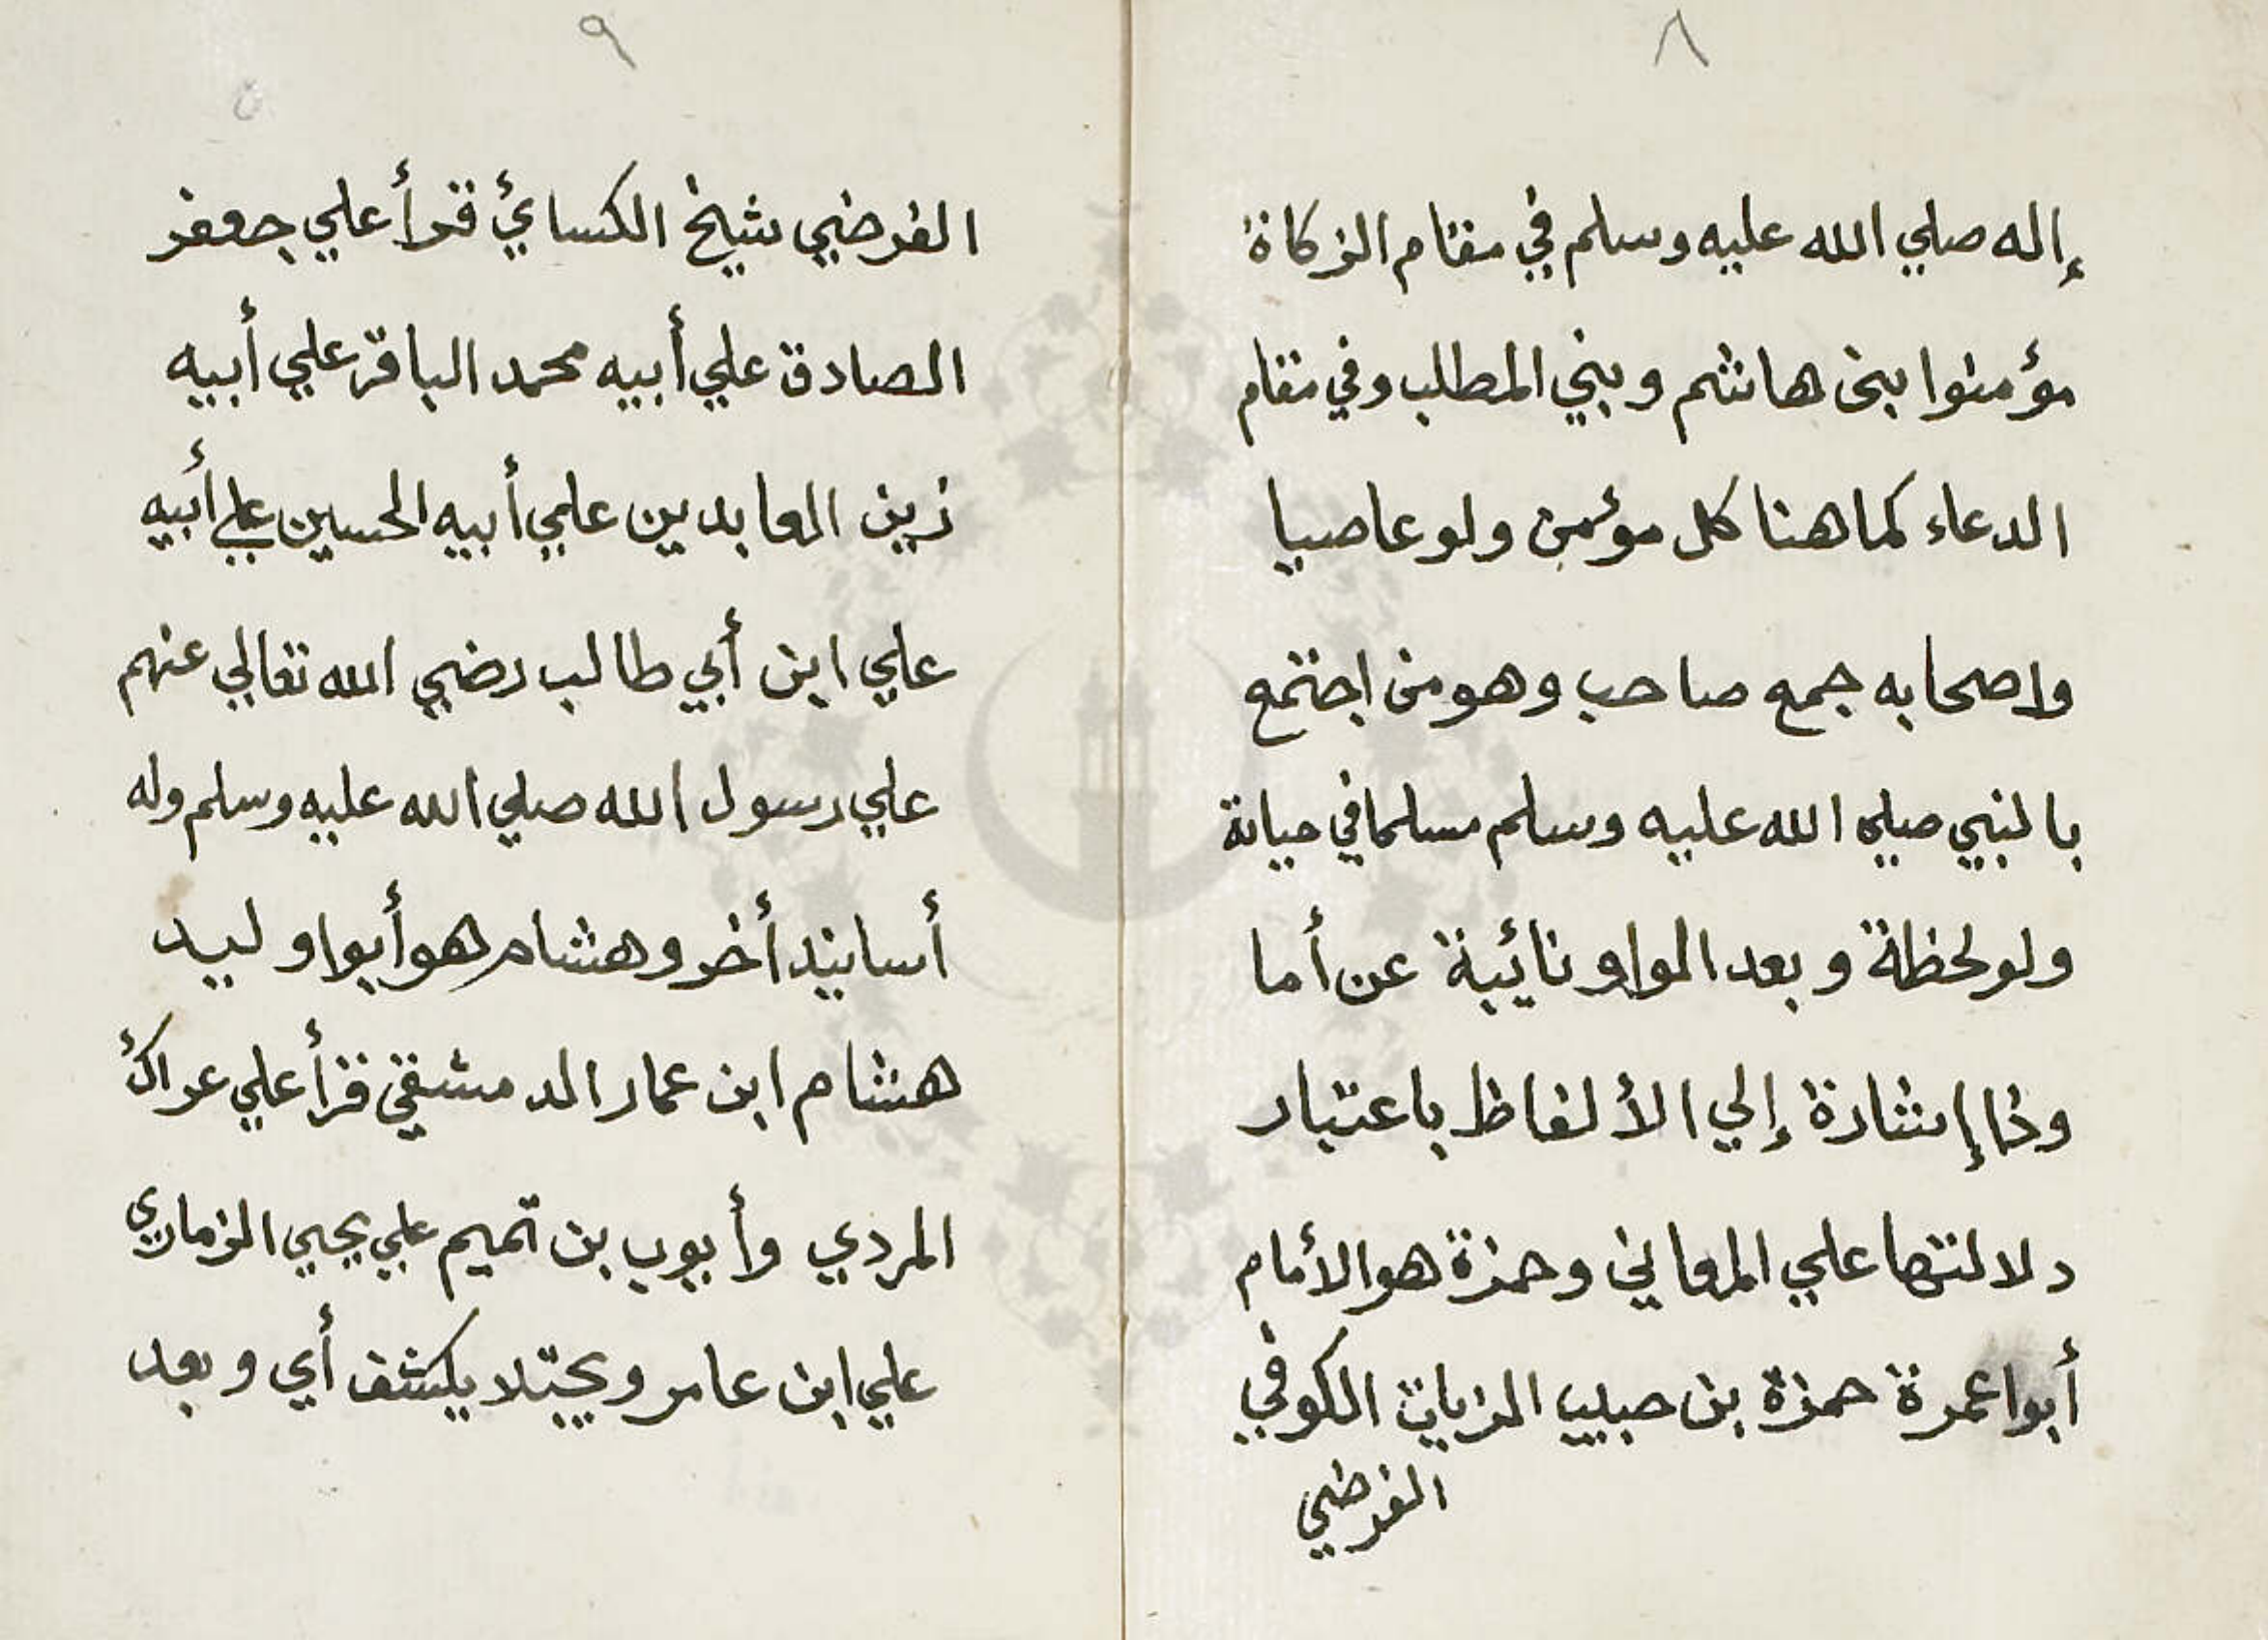 ٨
إله صلي الله عليه وسلم في مقام الزكاة
مؤمنوا بنى هاشم وبني المطلب وفي مقام
الدعاء كما هنا كل موئمن ولو عاصيا
واصحابه جمع صاحب وهو من اجتمع
بالنبي صلي الله عليه وسلم مسلما في حياتة
ولو لحظة وبعد الواو نائبة عن أما
وذا إشارة إلي الألفاظ باعتبار
دلالتها علي المعاني وحمزة هو الأمام
أبوا عمرة حمزة بن حبيب الزيات الكوفي
الفرضي
٩
الفرضي شيخ الكسائي قرأ علي جعفر
الصادق علي أبيه محمد الباقر علي أبيه
زين العابدين علي أبيه الحسين علي أبيه
علي ابن أبي طالب رضي الله تعالي عنهم
علي رسول الله صلي الله عليه وسلم وله
أسانيد أخر وهشام هو أبوا وليد
هشام ابن عمار الدمشقي قرأ علي عراك
المردي وأيوب بن تميم علي يحيي الزماري
علي ابن عامر ويجتلا يكشف أي وبعد